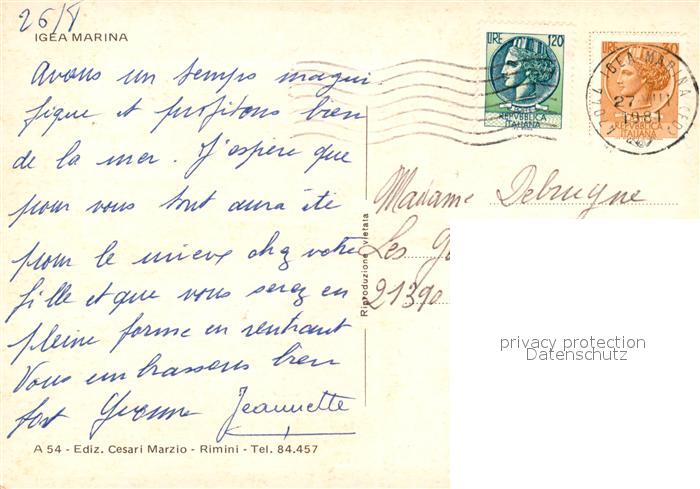 26/8
IGEA MARINA
Avons un temps magni
fique et profitons bien
de la mer. J'espère que
pour vous tout aura été
pour le mieux chez votre
fille et que vous serez en
pleine forme en rentrant
Vous embrassons bien
fort Yvonne Jeannette
A 54 - Ediz. Cesari Marzio - Rimini - Tel. 84.457
Riproduzione vietata
LIRE 120
REPVBBLICA
ITALIANA
LIRE
REPVBBLICA
ITALIANA
IGEA MARINA
27
1981
Madame Debruyne
Les
21390
privacy protection
Datenschutz